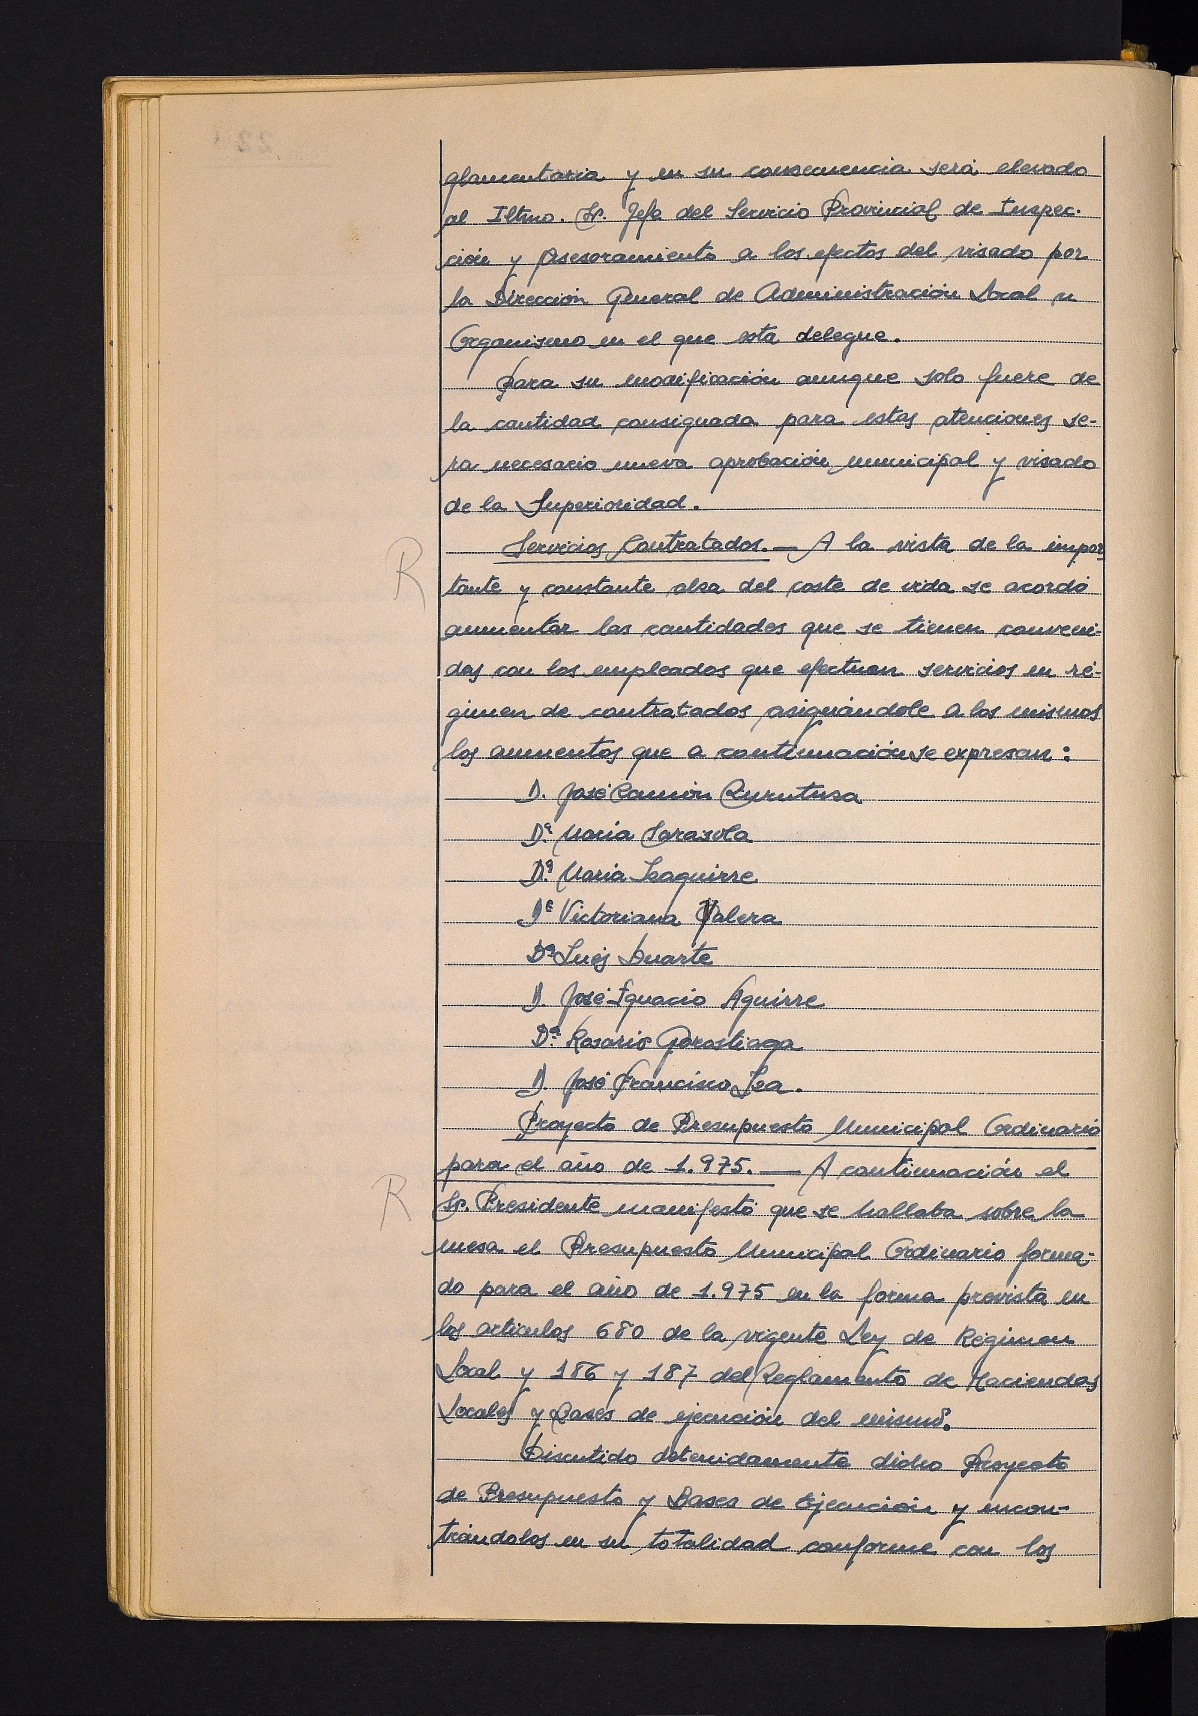 glamentaria y en su consecuencia será elevado
al Iltmo. Sr. Jefe del Servicio Provincial de Inspec-
ción y Asesoramiento a los efectos del visado por
la Dirección General de Administración Local u
Organismo en el que esta delegue.
Para su modificación aunque solo fuere de
la cantidad consignada para estas atenciones se-
ra necesario nueva aprobación municipal y visado
de la Superioridad.
R Servicios Contratados.— A la vista de la impor
tante y constante alza del coste de vida se acordó
aumentar las cantidades que se tienen conveni-
das con los empleados que efectuan servicios en ré-
gimen de contratados asignándole a los mismos
los aumentos que a continuación se expresan:
D. José Ramón Zurutuza
Dª Maria Sarasola
Dª Maria Izaguirre
Dª Victoriana Valera
Dª Inés Duarte
D. José Ignacio Aguirre
Dª Rosario Gorostiaga
D. José Francisco Zea.
Proyecto de Presupuesto Municipal Ordinario
para el año de 1.975.— A continuación el
R Sr. Presidente manifestó que se hallaba sobre la
mesa el Presupuesto Municipal Ordinario forma-
do para el año de 1.975 en la forma prevista en
los articulos 680 de la vigente Ley de Régimen
Local y 186 y 187 del Reglamento de Haciendas
Locales y Bases de ejecución del mismo.
Discutido detenidamente dicho Proyecto
de Presupuesto y Bases de Ejecución y encon-
trándolos en su totalidad conforme con los